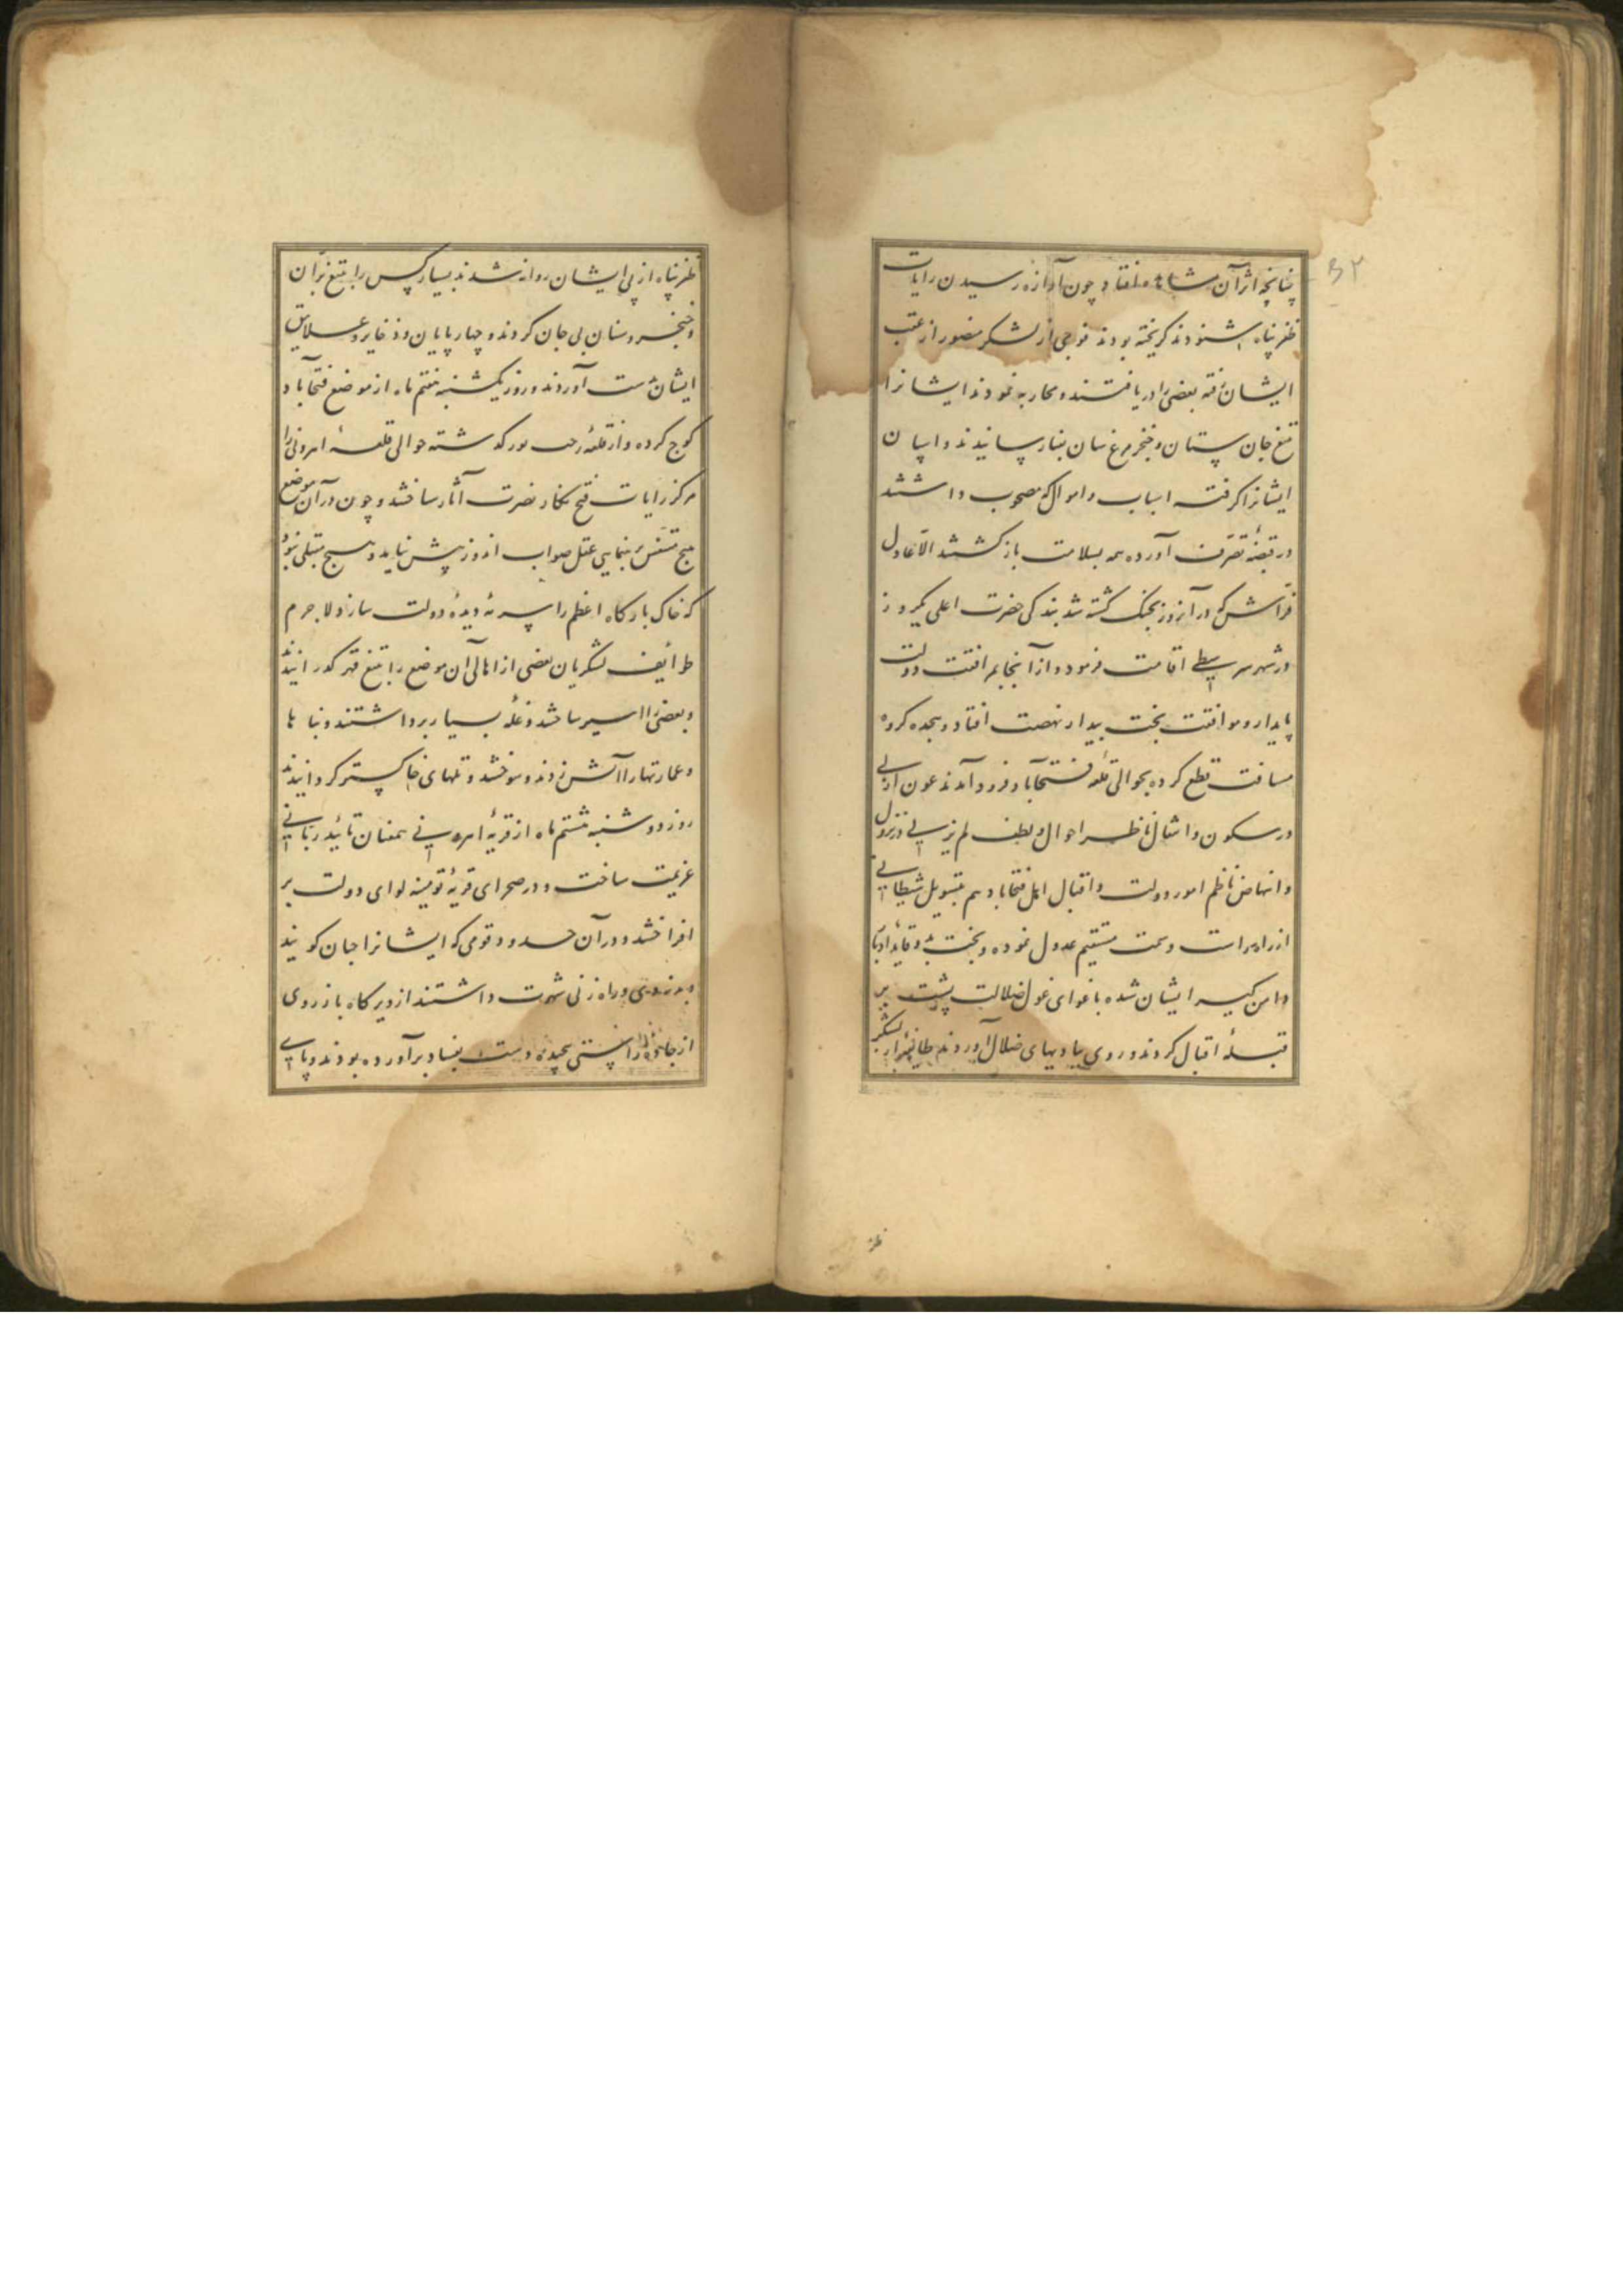 ۳۲
چنانچه اثر آن مشاهده افتاد چون آوازه رسیدن رایات
ظفر پناه شنودند کریخته بودند فوجی از لشکر منصور از عقب
ایشان رفته بعضی را دریافتند و محاربه نمودند ایشانرا
تیغ جان ستان و خنجر مرغ سان رسانیدند و اسپان
ایشانرا کرفته اسباب و اموال که مصحوب داشتند
در قبضهٔ تصرف آورده همه بسلامت بازکشتند الا عادل
فراش که در آنروز بجنک کشته شد بندکی حضرت اعلی یکروز
در شهر سرستی اقامت فرمود و از آنجا بمرافقت دولت
پایدار و موافقت بخت بیدار نهضت افتاد و هجده کروه
مسافت قطع کرده بحوالی قلعه فتحاباد فرود آمدند عون ازلی
در سکون و انتقال ناظر احوال و لطف لم یزلی در نزول
و انهاض ناظم امور دولت و اقبال اهل فتحاباد هم بتسویل شیطانی
از راه راست و سمت مستقیم عدول نموده و بخت بد و قاید ادبار
دامن کیر ایشان شده باغوای غول ضلالت پشت بر
قبلهٔ اقبال کردند و روی ببادیهای ضلال آوردند طایفهٔ از لشکر
ظفر
ظفر پناه از پی ایشان روانه شدند بسیار کس را بتیغ بران
و خنجر و سنان بی جان کردند و چهارپایان و ذخایر و علایق
ایشان بدست آوردند و روز یکشنبه هفتم ماه از موضع فتحاباد
کوچ کرده و از قلعهٔ رجب پور کذشته حوالی قلعهٔ اهرونی را
مرکز رایات فتح نکار نصرت آثار ساختند و چون در آن موضع
هیچ متنفس رهنمایی عقل صواب اندوز پیش نیاید و هیچ مقبلی نبود
که خاک بارکاه اعظم را سرمهٔ دیدهٔ دولت سازد لاجرم
طوایف لشکریان بعضی از اهالی آن موضع را بتیغ قهر کذرانیدند
و بعضی را اسیر ساختند و غلهٔ بسیار برداشتند و بناها
و عمارتها را آتش زدند و سوختند و تلهای خاکستر کردانیدند
روز دوشنبه هشتم ماه از قریهٔ اهرونی همعنان تائید ربانی
عزیمت ساخت و در صحرای قریهٔ توهنه لوای دولت بر
افراختند و در آن حدود قومی که ایشانرا جتان کویند
و بدزدی و راه زنی شهرت داشتند از دیرکاه باز روی
از جادهٔ راستی پیچیده دست بفساد برآورده بودند و پای